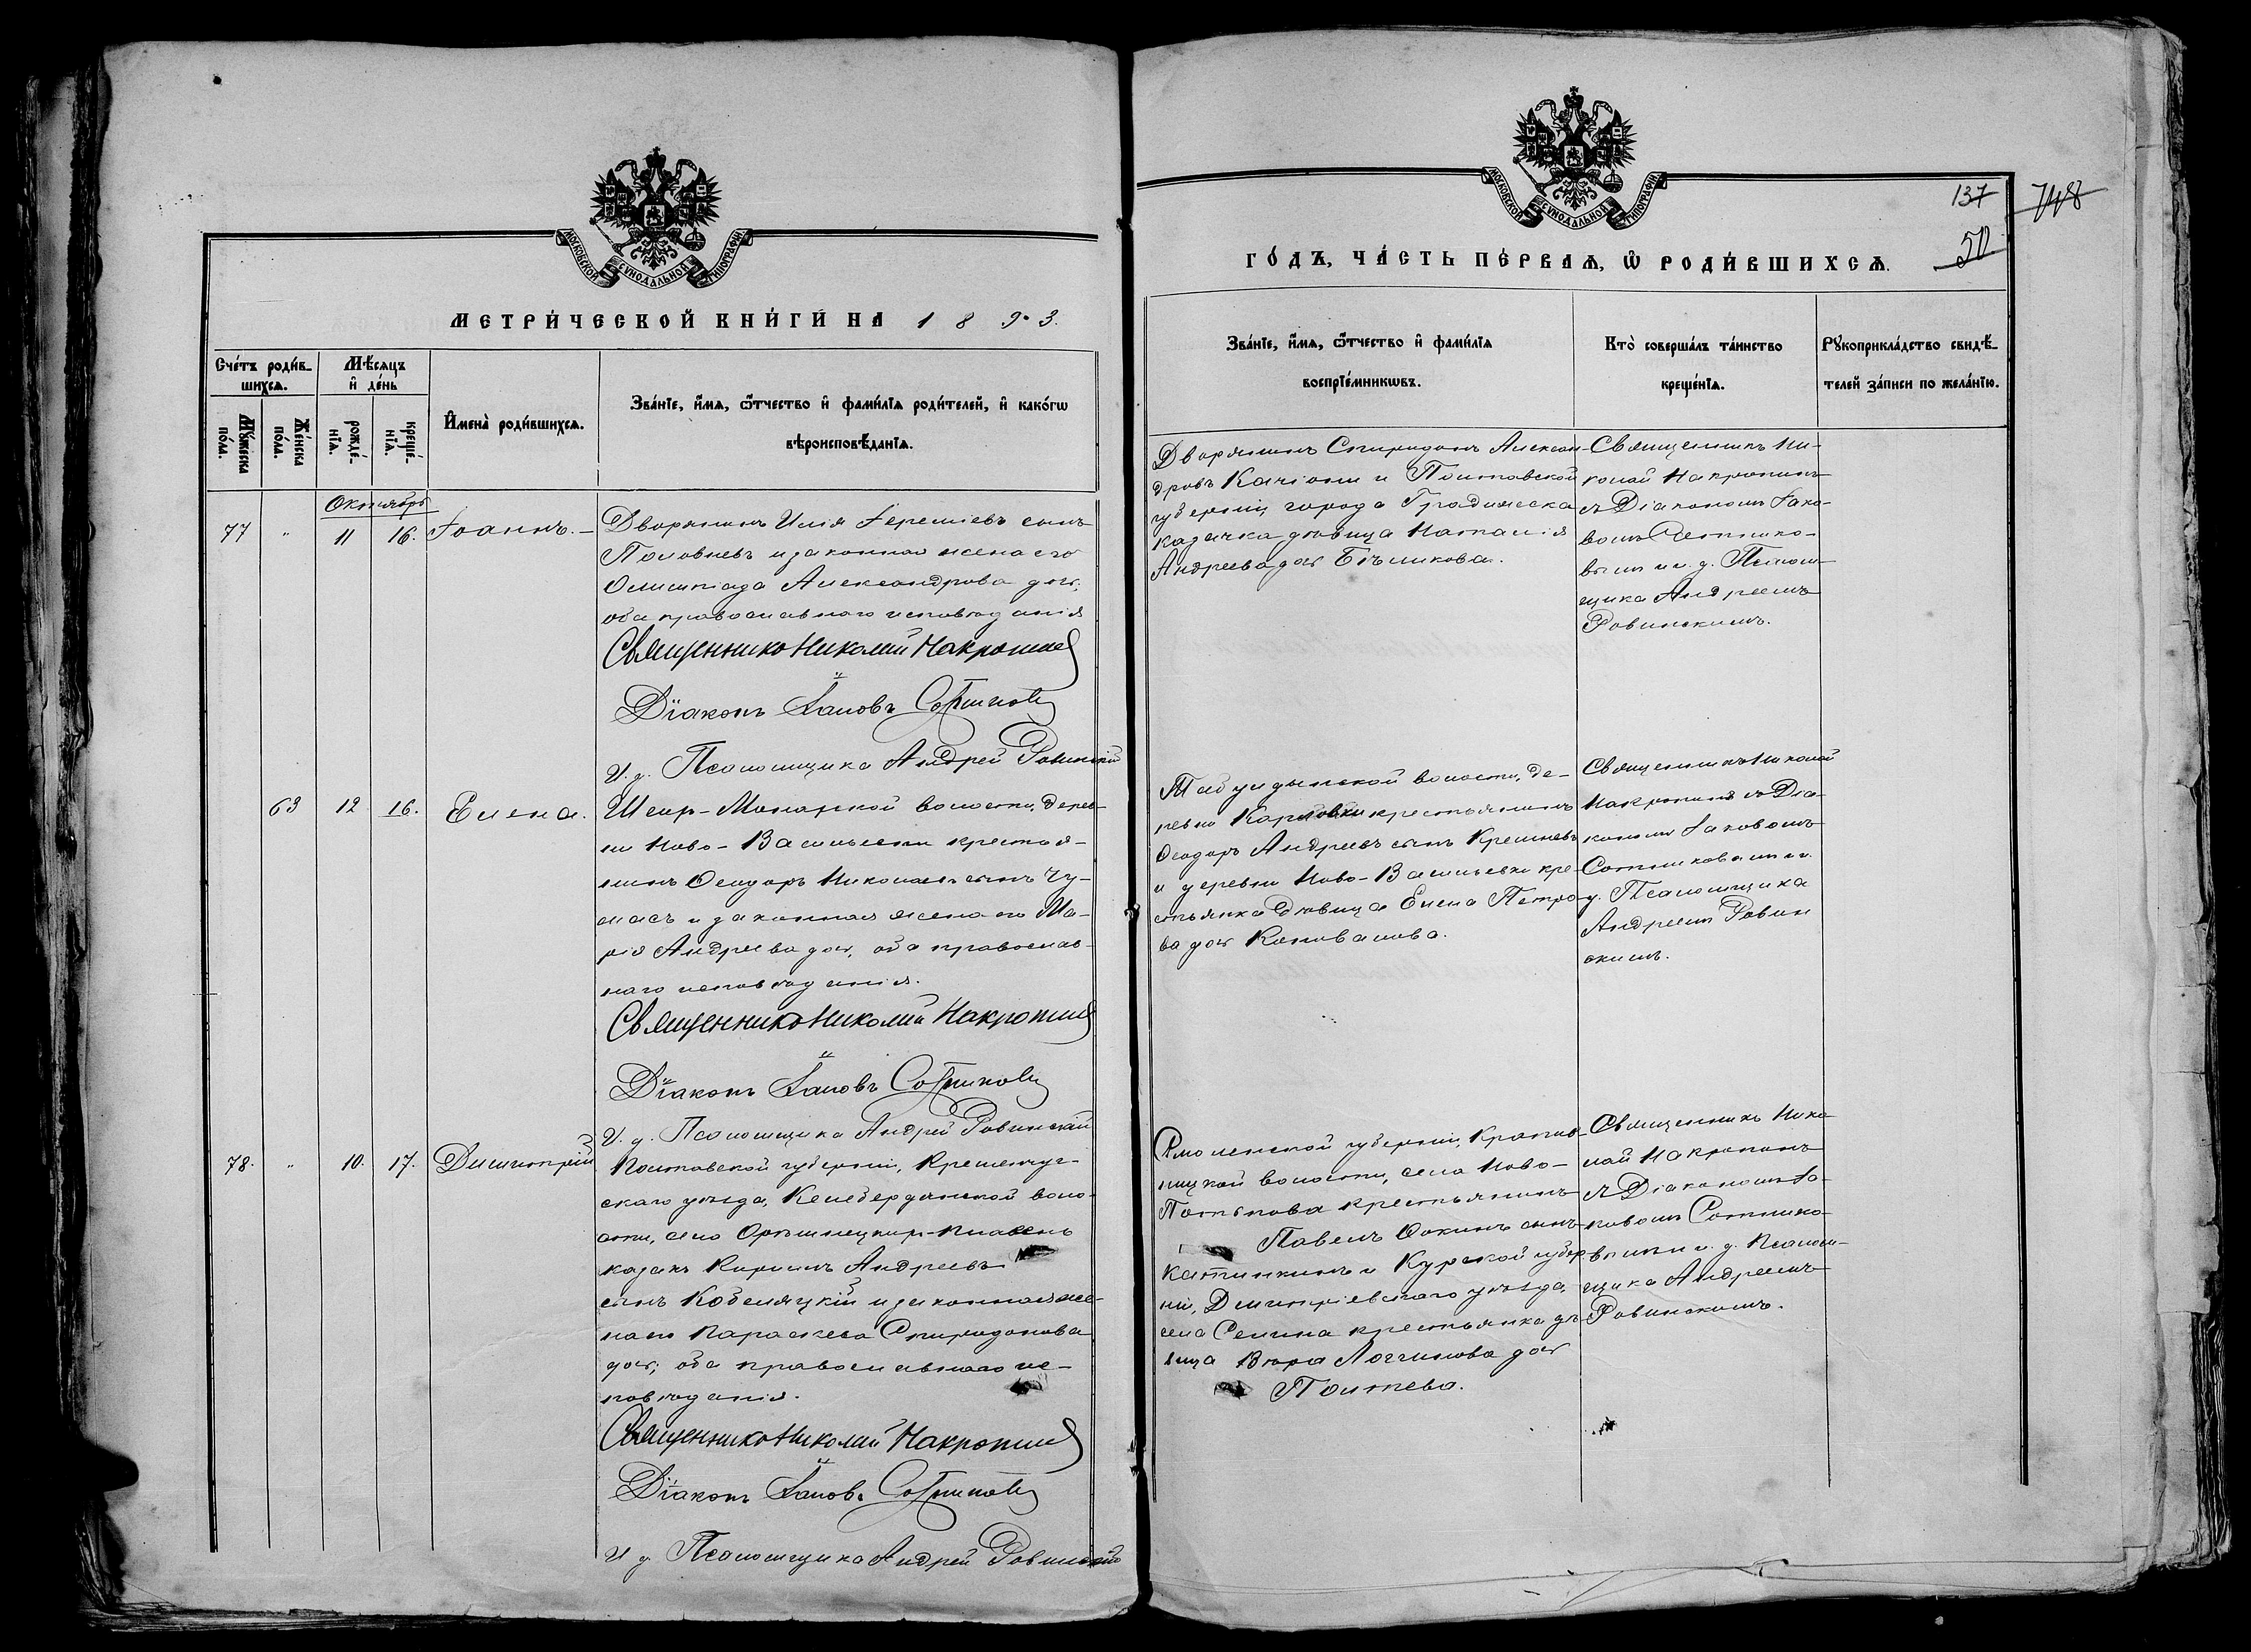 МОСКОВСКОЙ СѴНОДАЛЬНОЙ ТИПОГРАФІИ
МЕТРИ́ЧЕСКОЙ КНИ́ГИ НА 1893.
Сче́тъ роди́в-
шихсѧ.
Мꙋ́жеска
по́ла.
Же́нска
по́ла.
Мѣ́сѧцъ
и҆ де́нь
рожде́-
нїѧ.
креще́-
нїѧ.
И҆мена̀ роди́вшихсѧ.
Зва́нїе, и҆́мѧ, ѻ҆́тчество и҆ фами́лїѧ роди́телей, и҆ како́гѡ
вѣроисповѣ́данїѧ.
Октябрь
77 " 11 16. Іоаннъ. –
Дворянинъ Илія Іереміевъ сынъ
Половневъ и законная жена его
Олимпіада Александрова доч,
оба православнаго исповѣданія
Священникъ Николай Накропинъ
Діаконъ Іаковъ Сотниковъ
И. д. Псаломщика Андрей Ровинскій
63 12 16. Елена.
Шеир-Монарской волости, дерев-
ни Ново-Васильевки крестья-
нинъ Ѳеодоръ Николаевъ сынъ Чу-
масъ и законная жена его Ма-
рія Андреева доч, оба православ-
наго исповѣданія.
Священникъ Николай Накропинъ
Діаконъ Іаковъ Сотниковъ
И. д. Псаломщика Андрей Ровинскій
78. " 10. 17. Димитрій
Полтавской губерніи, Кременчуг-
скаго уѣзда, Келебердянской воло-
сти, села
казакъ Кириллъ Андреевъ
сынъ Кобеляцкій и законная же-
на его Параскева Спиридонова
доч; оба православнаго ис-
повѣданія.
Священникъ Николай Накропинъ
Діаконъ Іаковъ Сотниковъ
И д. Псаломщика Андрей Ровинскій
МОСКОВСКОЙ СѴНОДАЛЬНОЙ ТИПОГРАФІИ
137
748
50
ГО́ДЪ, ЧА́СТЬ ПЕ́РВАѦ, Ѡ҆ РОДИ́ВШИХСѦ.
Зва́нїе, и҆́мѧ, ѻ҆́тчество и҆ фами́лїѧ
воспрїе́мникѡвъ.
Кто̀ соверша́лъ та́инство
креще́нїѧ.
Рꙋкоприкла́дство свидѣ́-
телей за́писи по жела́нїю.
Дворянинъ Спиридонъ Алексан-
дровъ Качіони и Полтавской
губерніи города Градижска
казачка дѣвица Наталія
Андреева доч Бѣликова.
Священникъ Ни-
колай Накропинъ
съ Діакономъ Іако-
вомъ Сотнико-
вымъ и и. д. Псалом-
щика Андреемъ
Ровинскимъ.
волости, де-
ревни Карловки крестьянинъ
Ѳеодоръ Андреевъ сынъ Кремневъ
и деревни Ново-Васильевки кре-
стьянка дѣвица Елена Петро-
ва доч Коновалова.
Священникъ Николай
Накропинъ съ Діа-
кономъ Іаковомъ
Сотниковымъ и и.
д. Псаломщика
Андреемъ Ровин
скимъ.
Смоленской губерніи,
волости, села Ново-
Потапова крестьянинъ
Павелъ Ѳокинъ сынъ
Катинкинъ и Курской губер-
ніи, Дмитріевскаго уѣзда,
села Селина крестьянка дѣ-
вица Вѣра Логгинова доч
Полтева.
Священникъ Нико
лай Накропинъ
съ Діакономъ Іа-
ковомъ Сотнико-
вымъ и и. д. Псалом-
щика Андреемъ
Ровинскимъ.